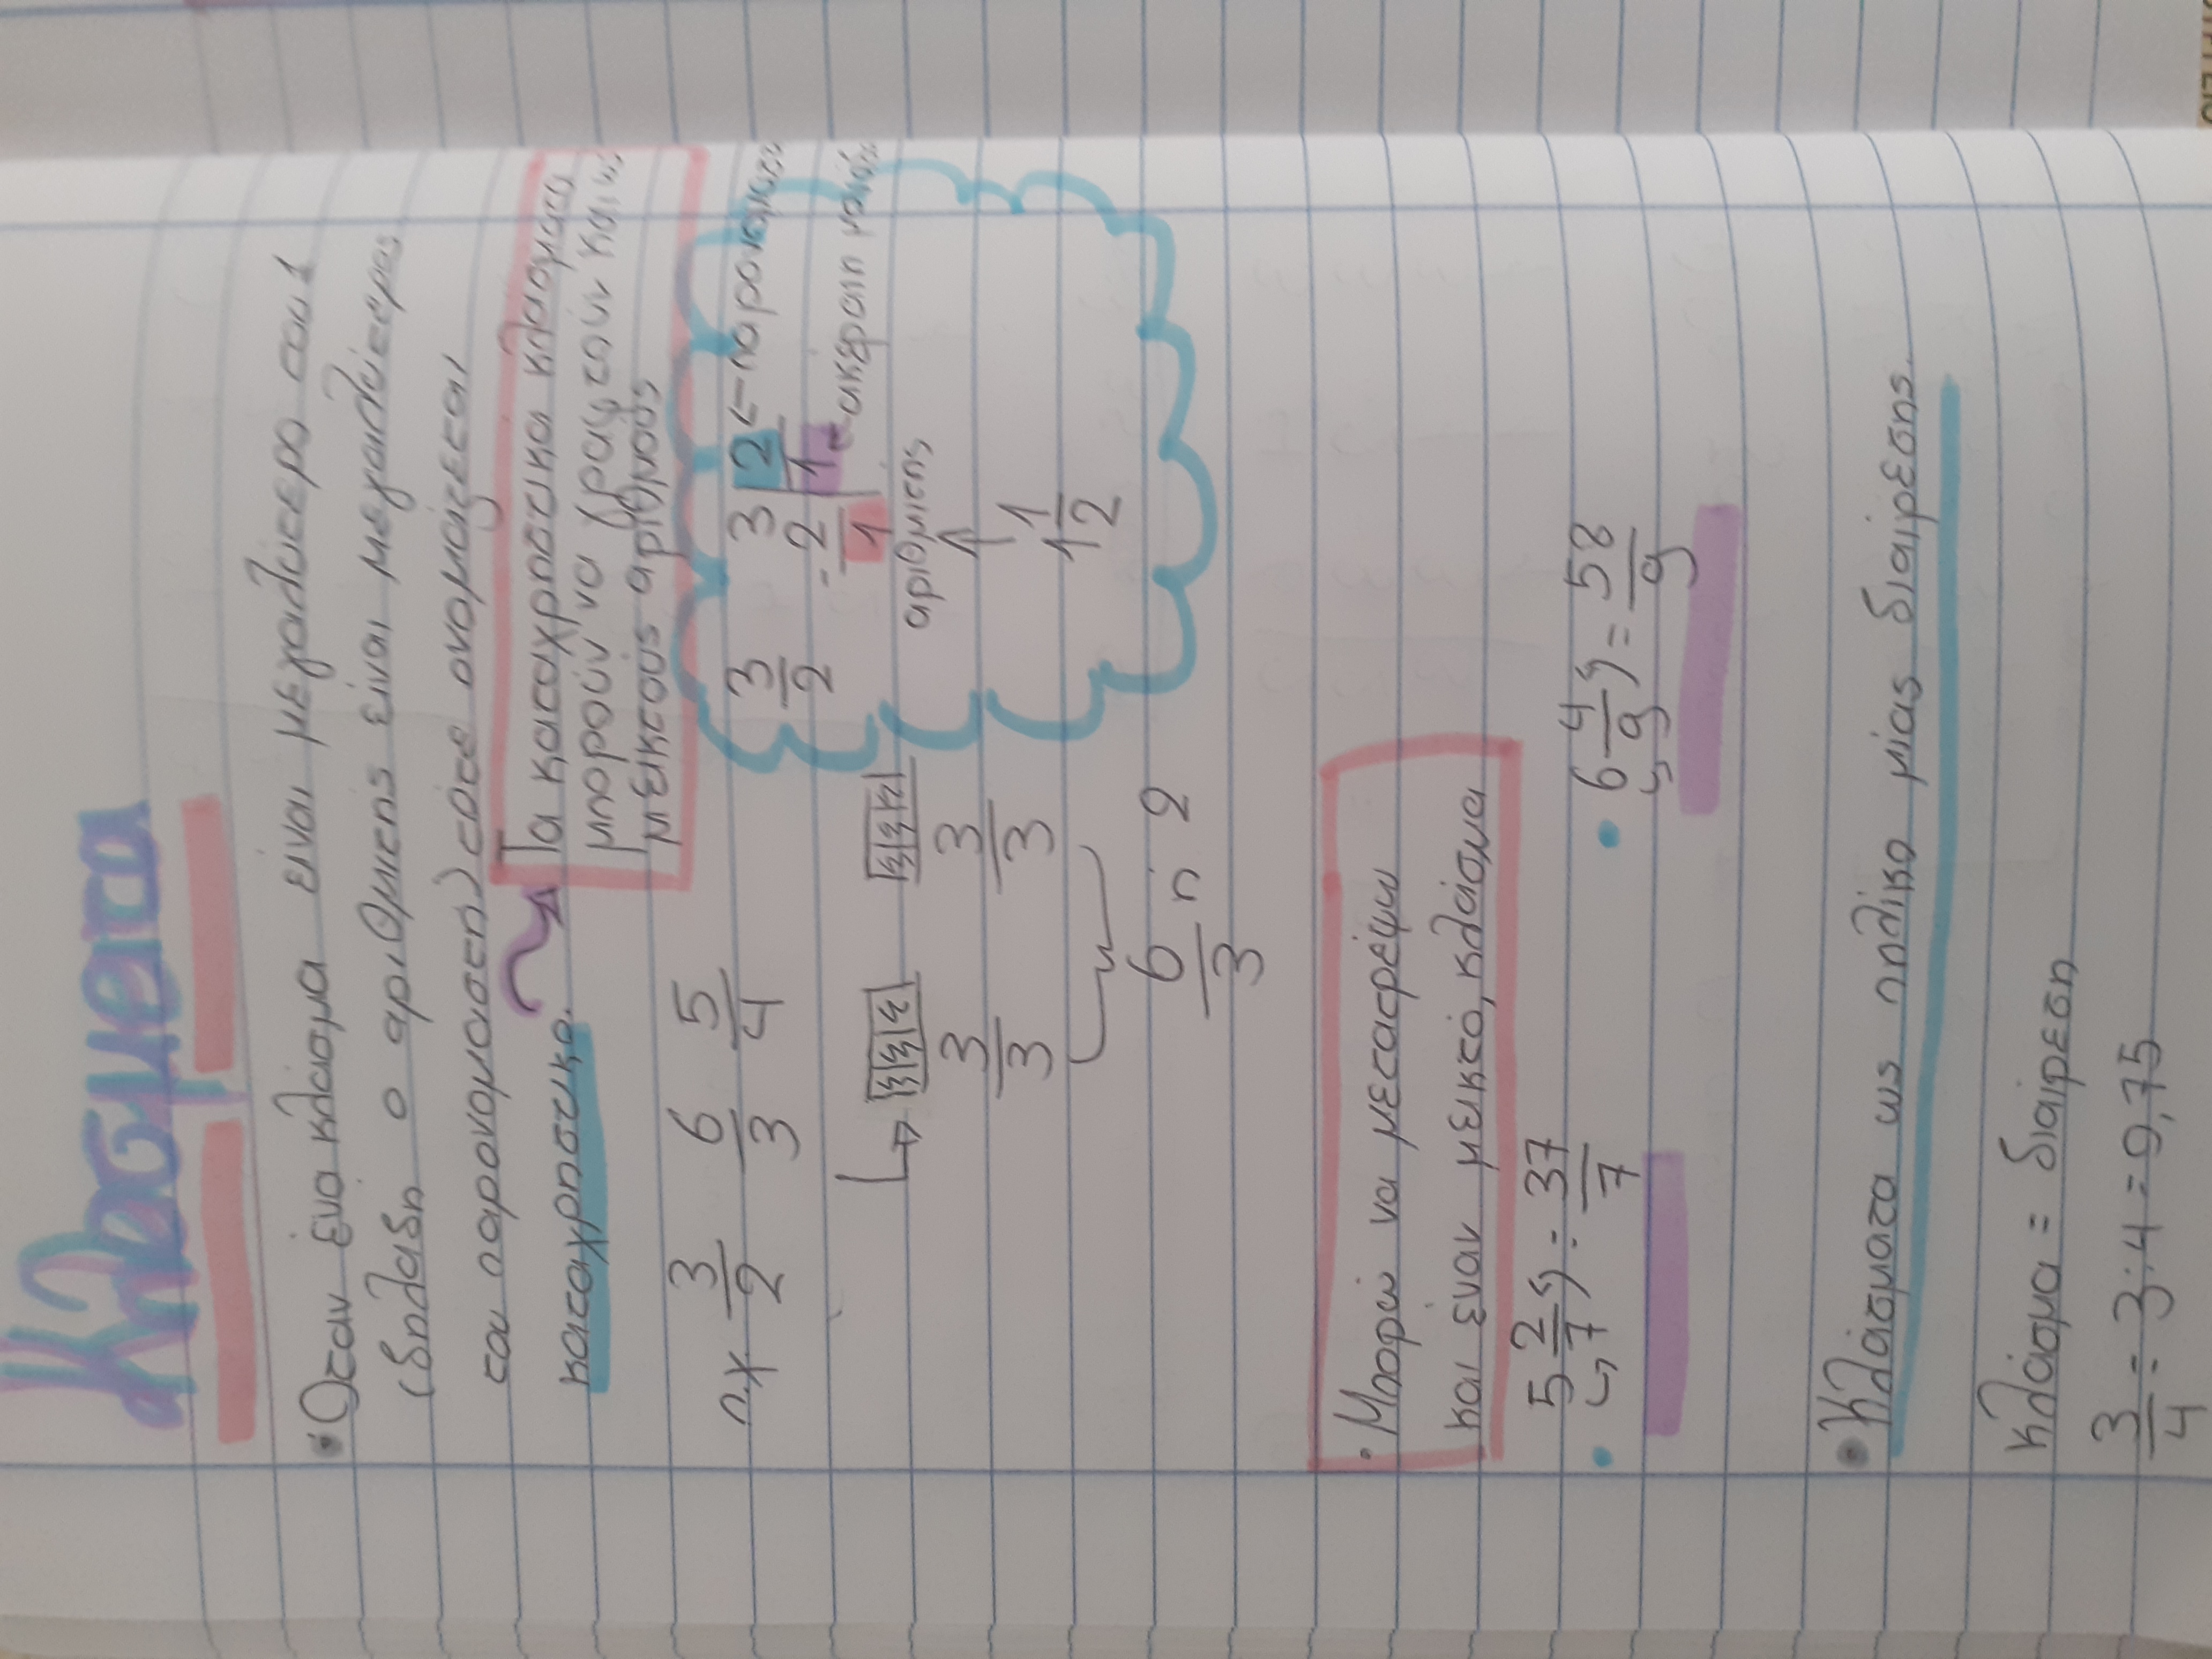 Κλάσματα
• Όταν ένα κλάσμα είναι μεγαλύτερο του 1
(δηλαδή ο αριθμητής είναι μεγαλύτερος
του παρονομαστή) τότε ονομάζεται
καταχρηστικό.
Τα καταχρηστικά κλάσματα
μπορούν να γραφτούν και ως
μεικτούς αριθμούς
π.χ 3/2 6/3 5/4
3/2 3 2 ← παρονομαστ
- 2 1 ← ακέραιη μονάδ
1
αριθμητής
1 1/2
3/3 3/3
6/3 ή 2
• Μπορώ να μετατρέψω
και έναν μεικτό, κλάσμα
• 5 2/7 = 37/7 • 6 4/9 = 58/9
• Κλάσματα ως πηλίκο μίας διαίρεσης.
Κλάσμα = διαίρεση
3/4 = 3:4 = 0,75